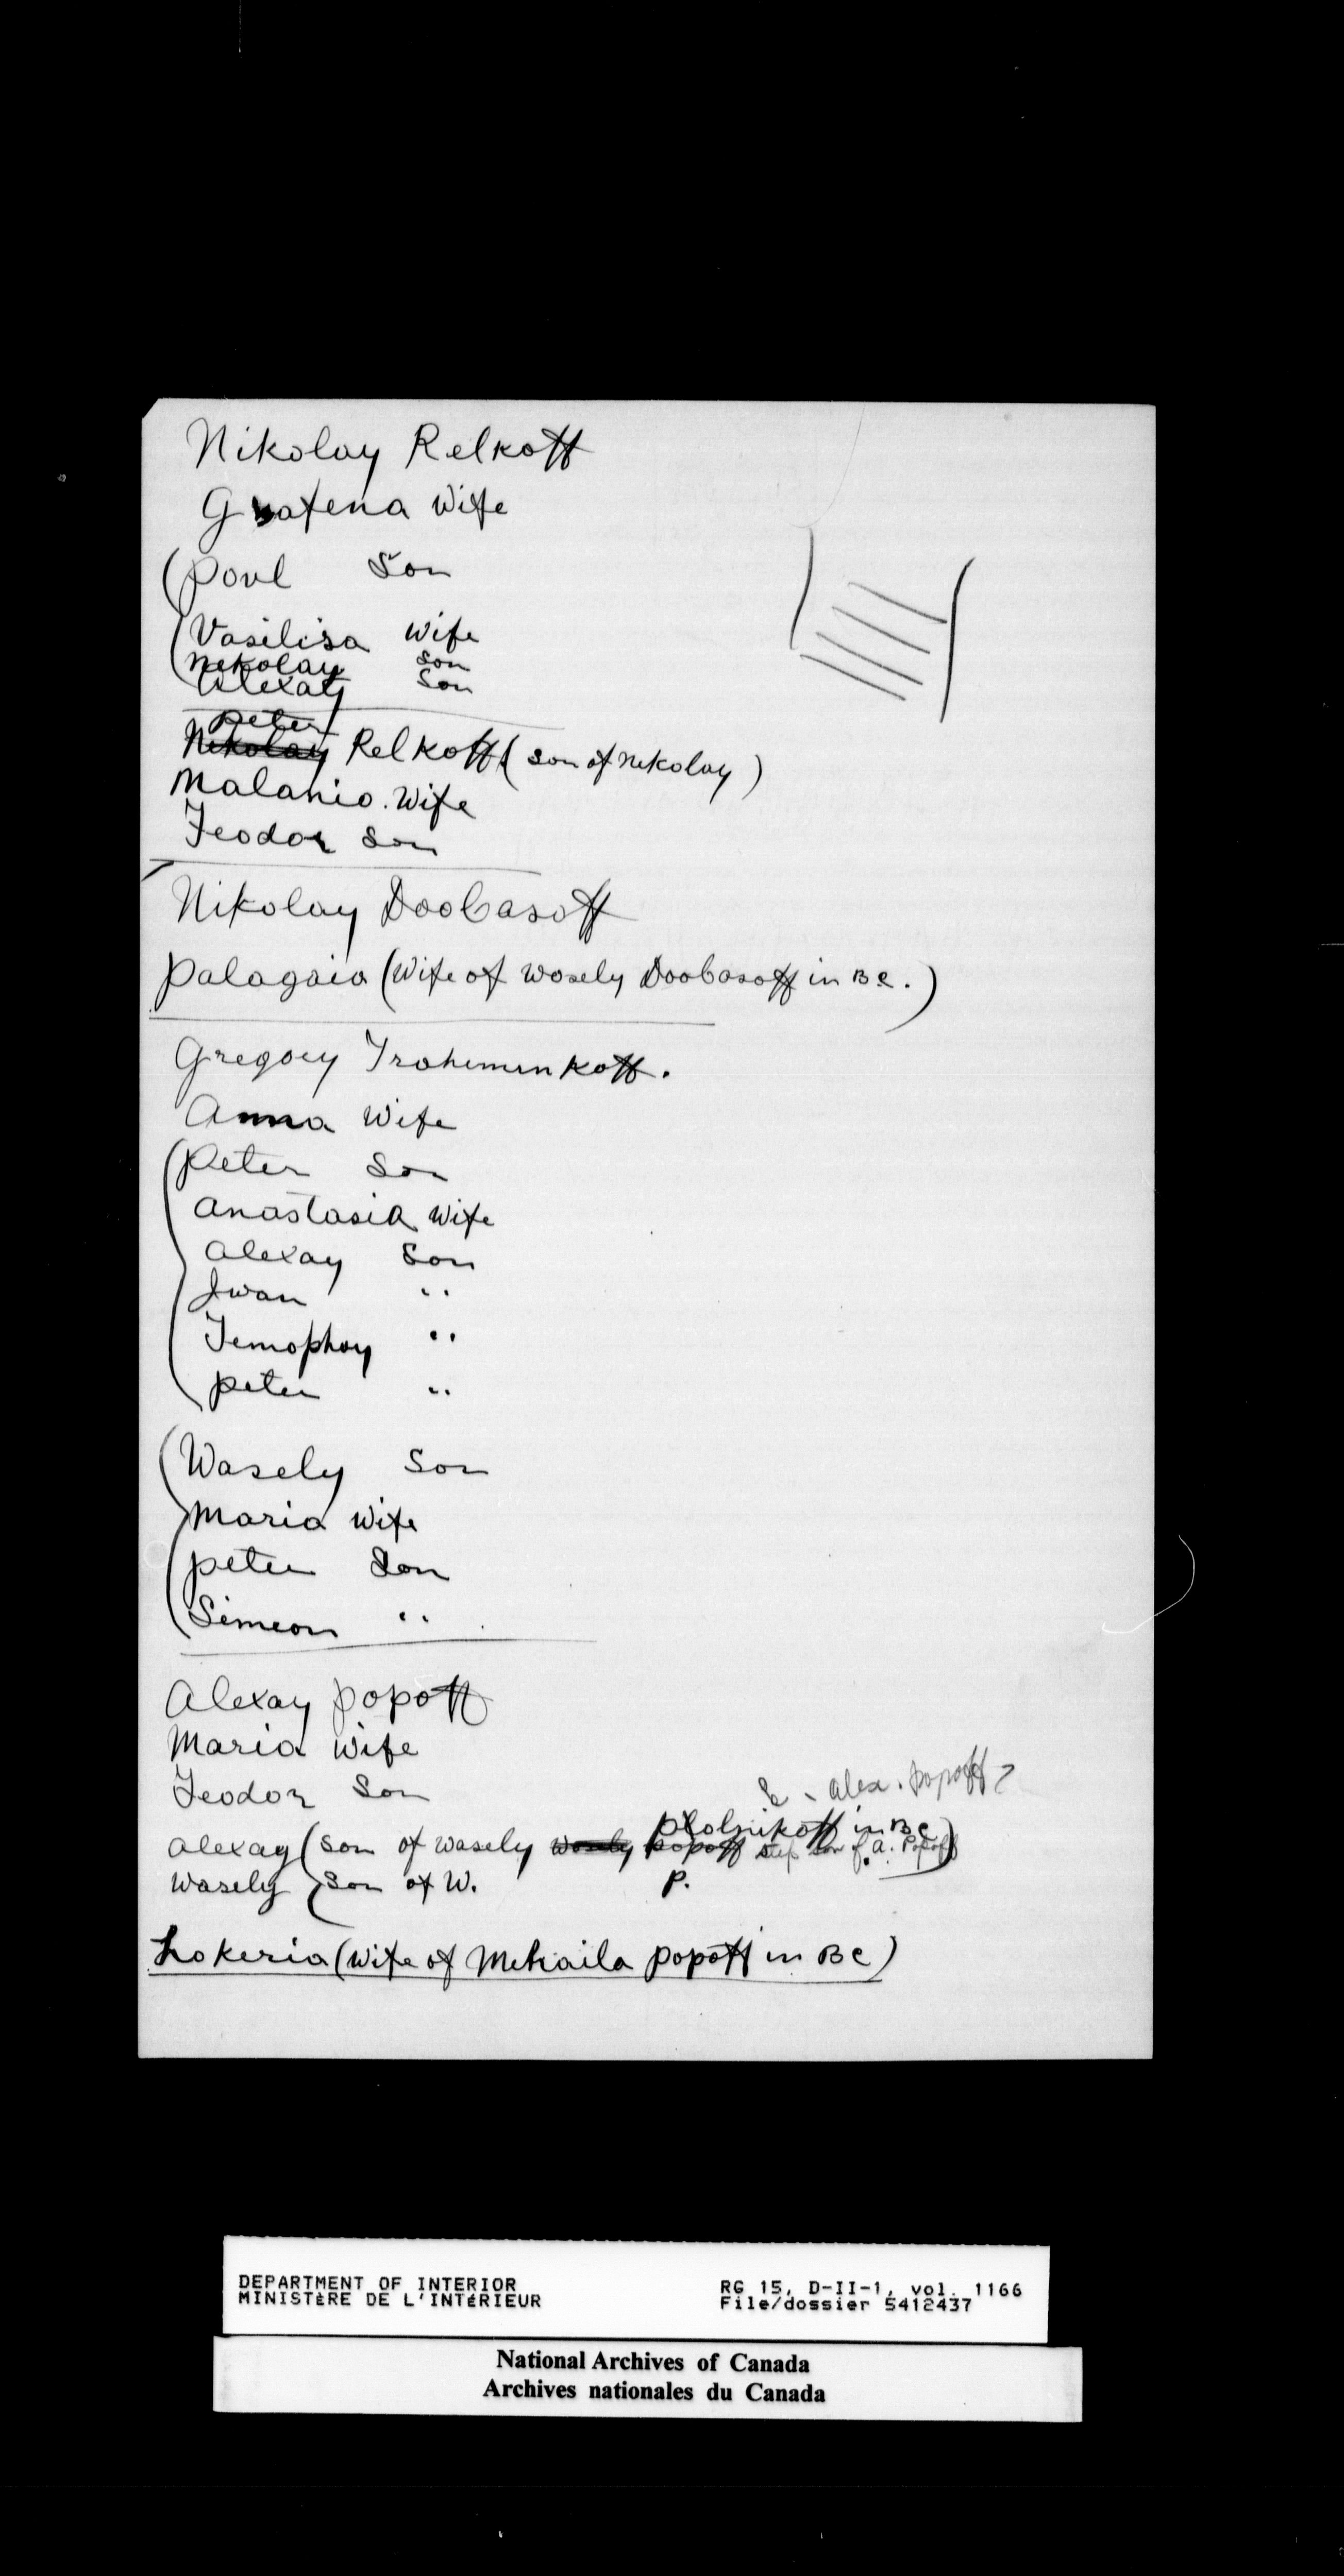 Nikolay Relkoff
Grafena Wife
(Povl Son
(Vasilisa Wife
Nekolay Son
Alexay Son
Peter
Nekolay Relkoff (Son of Nekolay)
Malanio. Wife
Feodor Son
Nikolay Doobasoff
Palagaia (Wife of Wasely Doobasoff in BC.)
Gregory Trohimenkoff.
Anna Wife
(Peter Son
Anastasia Wife
Alexay Son
Iwan "
Temophay "
Peter "
(Wasely Son
Maria Wife
Peter Son
Simeon "
Alexay Popoff
Maria Wife
Feodor Son
Alex. Popoff?
Plotnikoff in BC
Alexay (Son of Wasely Wasely Popoff step son of A. Popoff)
Wasely (Son of W. P.
Lokeria (Wife of Mekaila Popoff in BC)
DEPARTMENT OF INTERIOR
MINISTÈRE DE L'INTÉRIEUR
RG 15, D-II-1, vol. 1166
File/dossier 5412437
National Archives of Canada
Archives nationales du Canada